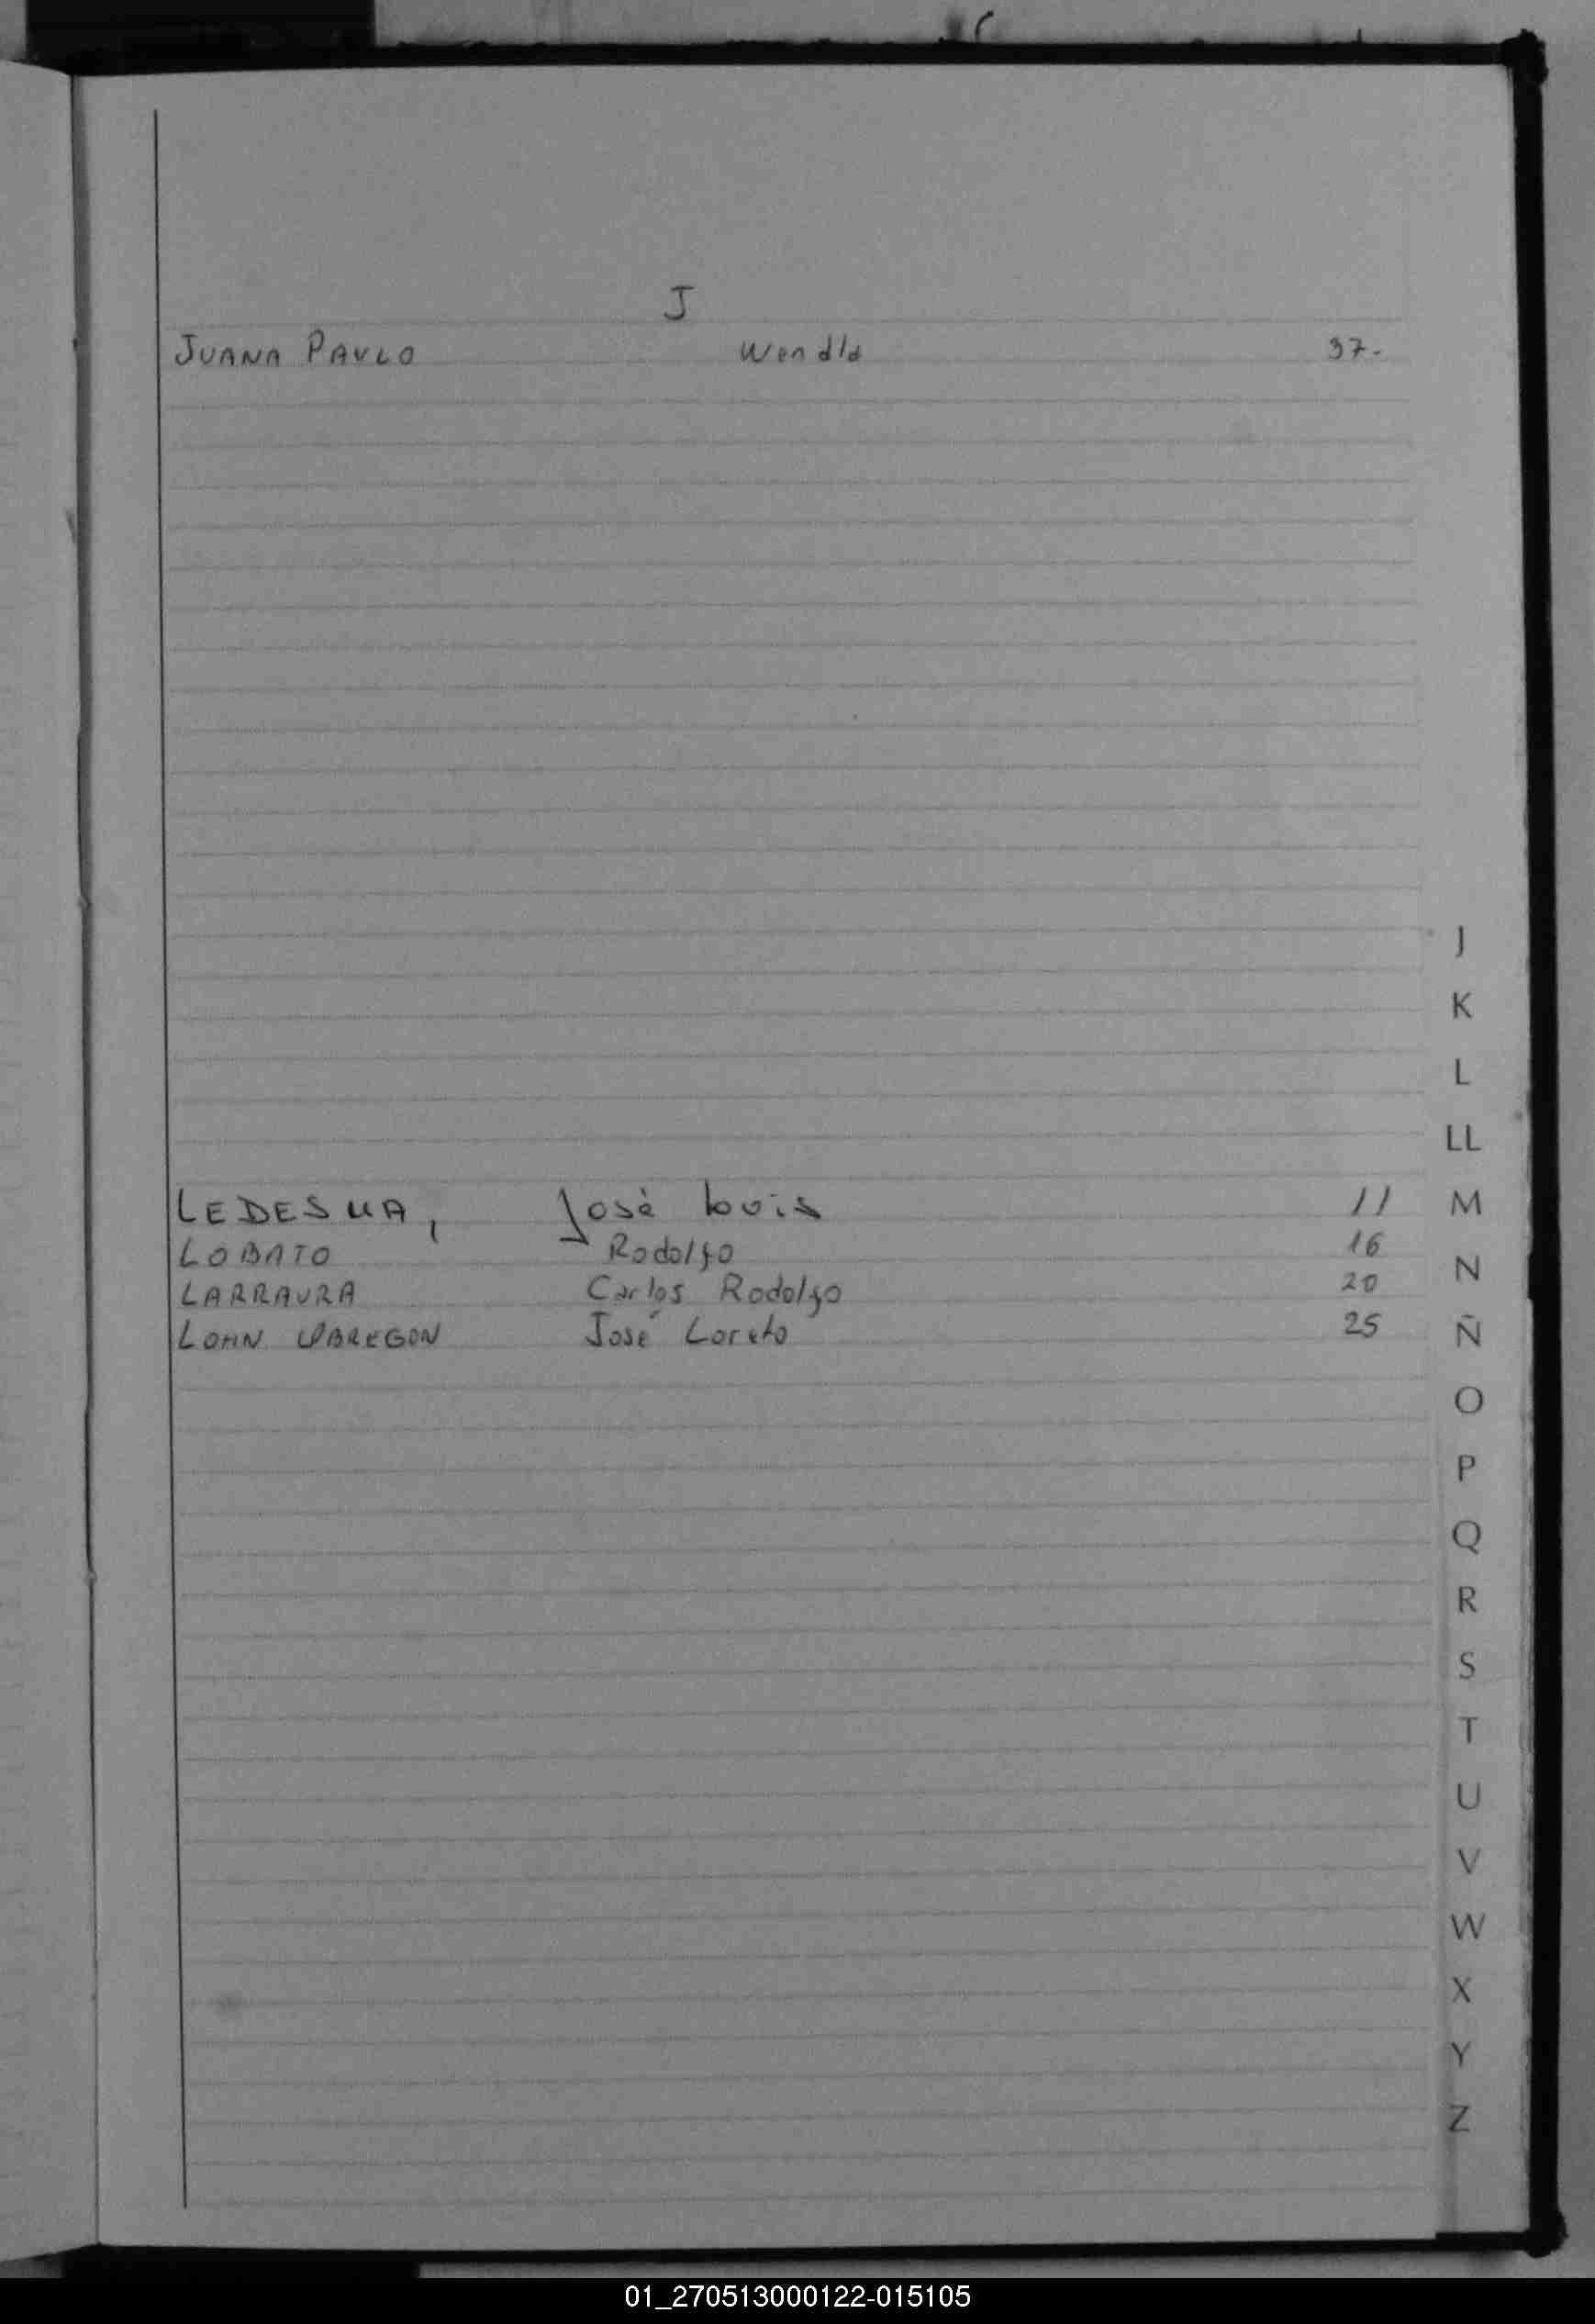 J
JUANA PAULO Wendld 37.-
J
K
L
LL
LEDESMA, José Luis 11 M
LOBATO Rodolfo 16
LARRAURA Carlos Rodolfo 20 N
LOHN OBREGON José Loreto 25 Ñ
O
P
Q
R
S
T
U
V
W
X
Y
Z
01_270513000122-015105